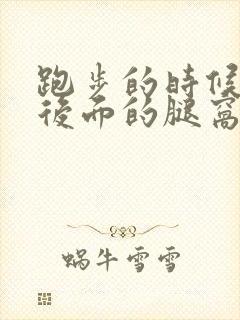 跑步的時候
後面的腿窩
蝸牛雪雪